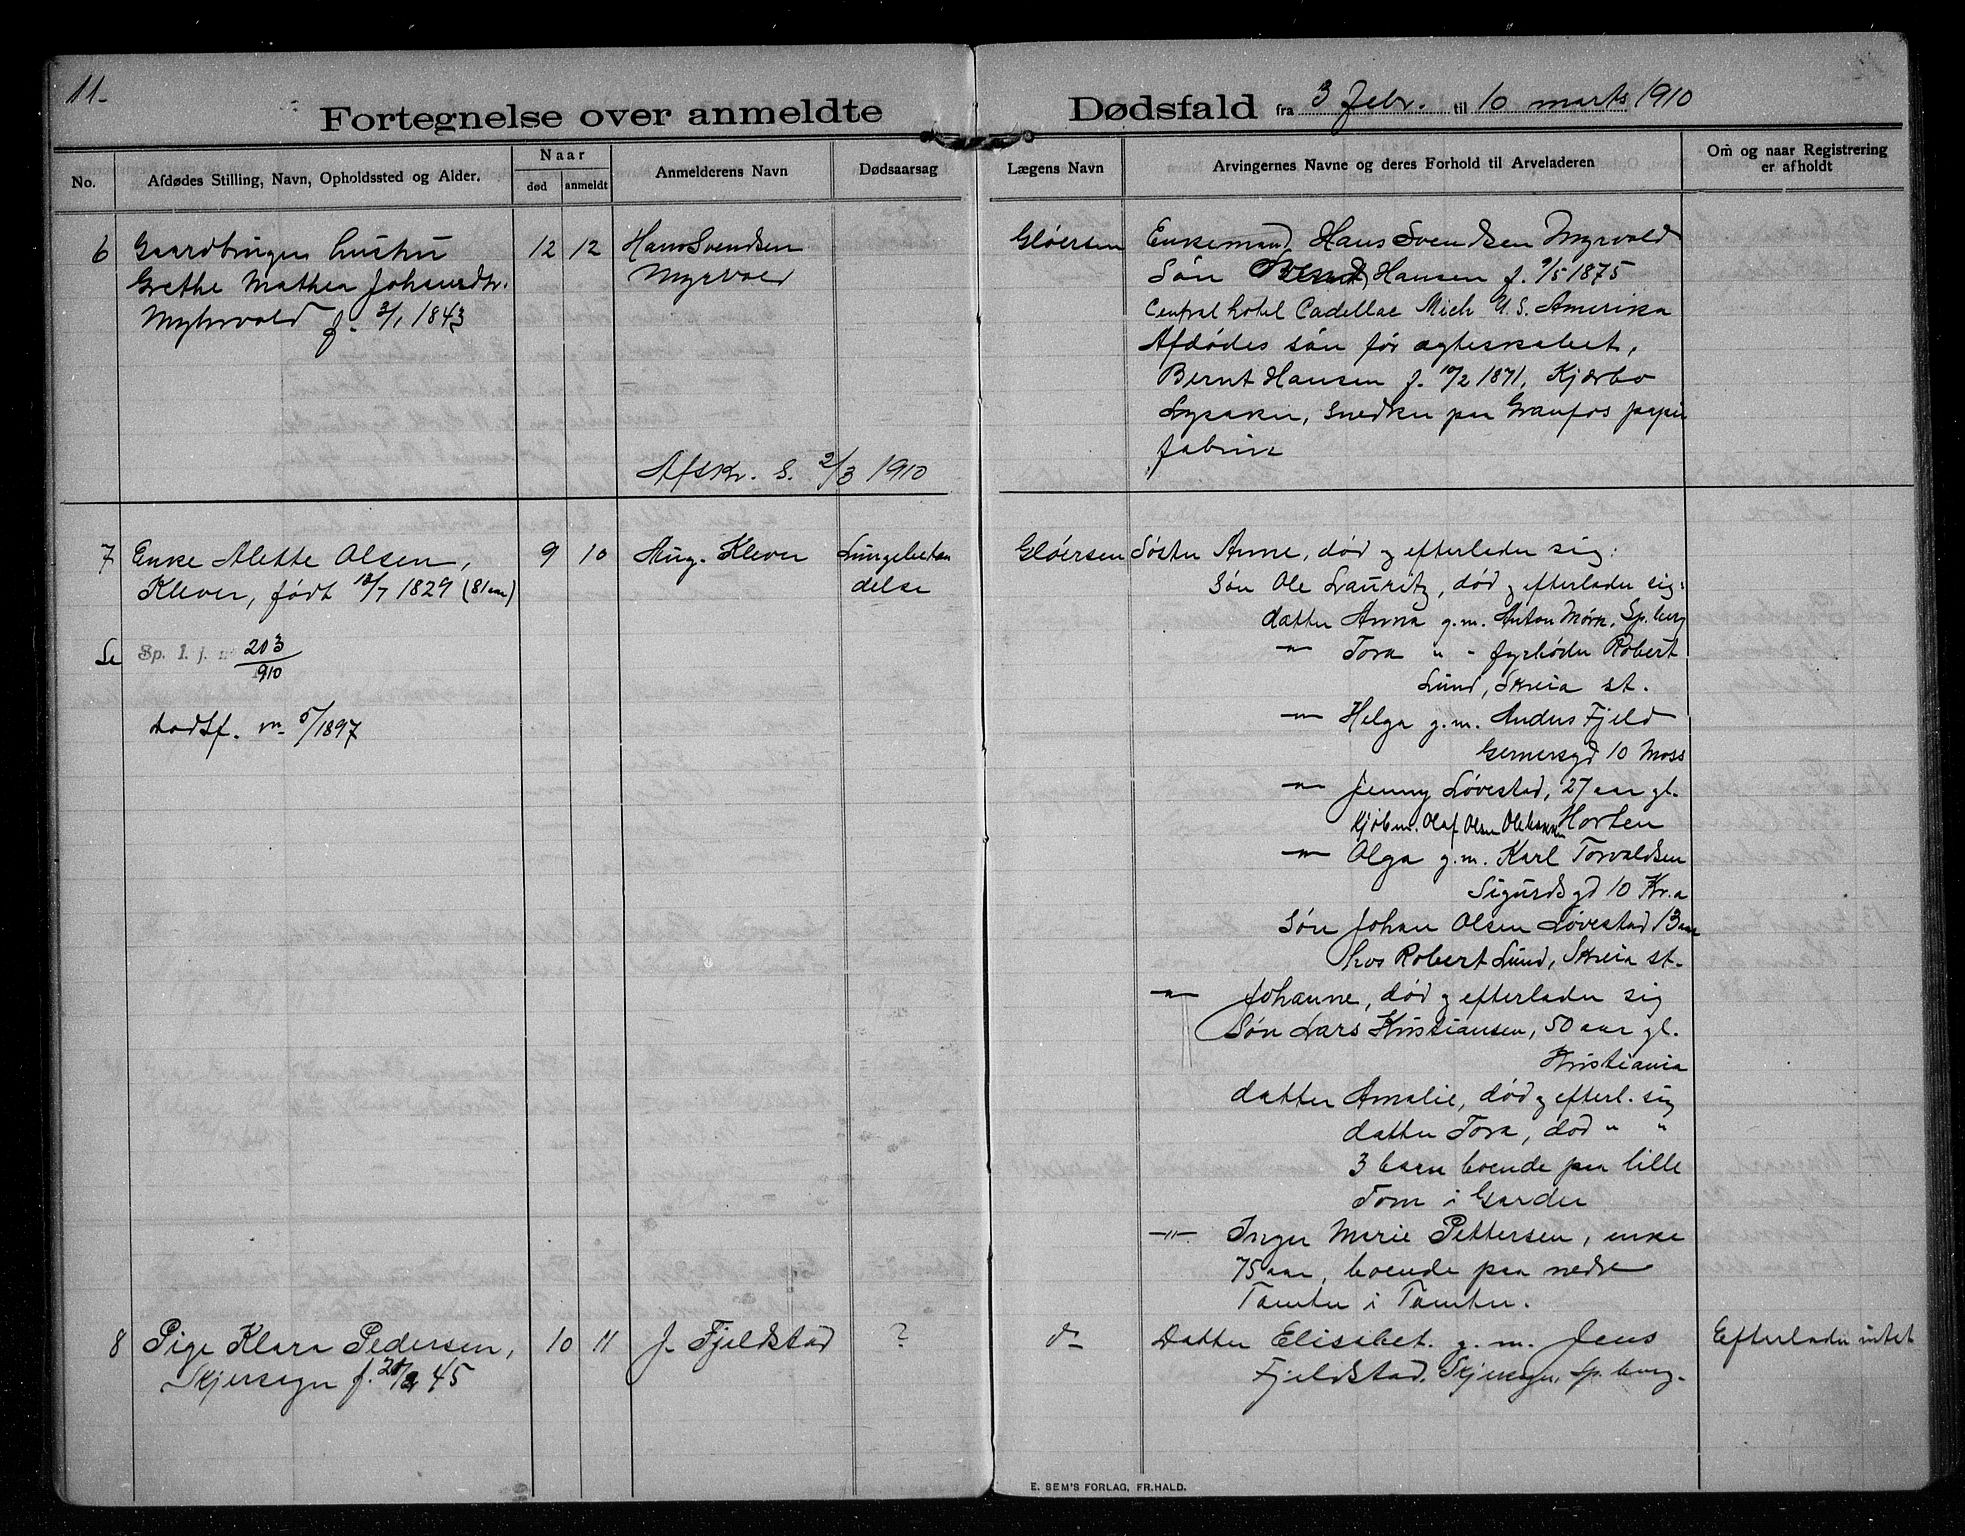 11.
Fortegnelse over anmeldte Dødsfald fra 3 febr. til 10 marts 1910
No.
Afdødes Stilling, Navn, Opholdssted og Alder.
Naar
død
anmeldt
Anmelderens Navn
Dødsaarsag
Lægens Navn
Arvingernes Navne og deres Forhold til Arveladeren
Om og naar Registrering
er afholdt
6
Gaardbruger hustru
Grethe Mathea Johansdtr.
Myhrvold f. 3/1 1843
12
12
Hans Svendsen
Myrvold
Gløersen
Enkemand Hans Svendsen Myrvold
Søn Bernt Hansen f. 9/5 1875
Central hotel Cadellac Mich U.S. Amerika
Afdødes søn før ægteskabet,
Bernt Hansen f. 10/2 1871, Kjærbo
Lysaker, snedker paa Granfos papir
fabrik
Afskr. S. 2/3 1910
7
Enke Alette Olsen,
Klever, født 18/7 1829 (81 aar)
Se Sp. l. j. nr 203/910
dødsf. nr 5/1897
9
10
Aug. Klever
Lungebetæn
delse
Gløersen
Søster Anne, død og efterlader sig:
Søn Ole Lauritz, død og efterlader sig:
datter Anna g.m. Anton Mørk, Sp.berg
—"— Tora " " fyrbøder Robert
Lund, Skreia st.
—"— Helga g.m. Anders Fjeld
Gernersgd 10 Moss
—"— Jenny Løvestad, 27 aar gl.
Kjøbm. Olaf Olsen Horten
—"— Olga g.m. Karl Torvaldsen
Sigurdsgd 10 Kr.a
Søn Johan Olsen Løvestad 13 aar
hos Robert Lund, Skreia st.
—"— Johanne, død og efterlader sig
Søn Lars Kristiansen, 50 aar gl.
Kristiania
datter Amalie, død og efterl. sig
datter Tora, død " "
3 barn boende paa lille
Tom i Garder
—"— Inger Marie Pettersen, enke
75 aar, boende paa nedre
Tomter i Tomter.
8
Pige Klara Pedersen,
Skjersogn f. 20/2 45
10
11
J. Fjeldstad
?
do
Datter Elisabet g.m. Jens
Fjeldstad, Skjersogn, Sp.berg.
Efterlader intet
E. SEM'S FORLAG, FR.HALD.